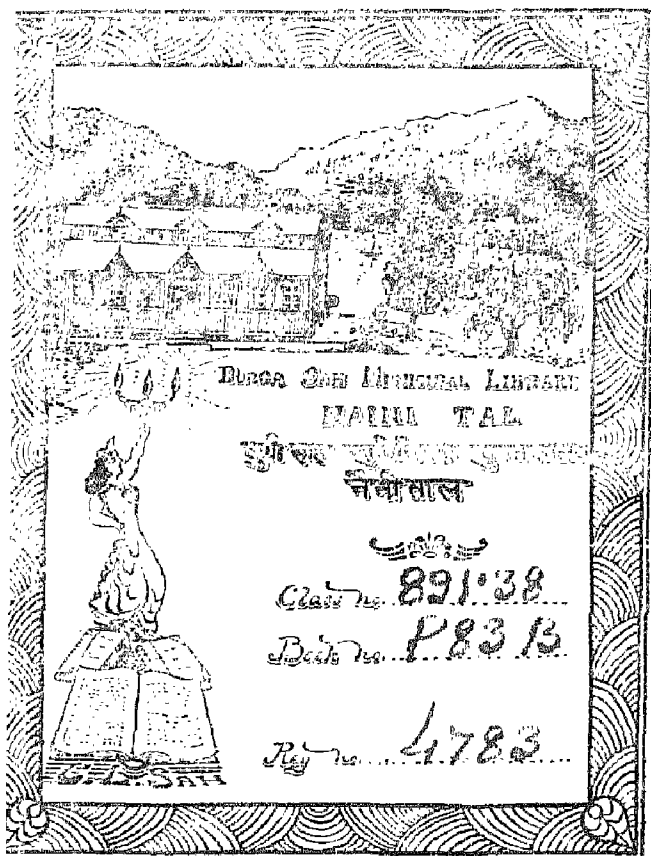 DURGA SAH MUNICIPAL LIBRARY
NAINI TAL
दुर्गा साह म्युनिसिपल
नैनीताल
Class no. 891.38
Book no. P83B
Reg no. 4783
SAH